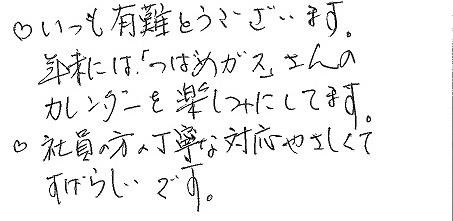 ♡いつも有難とうございます。
年末には「つばめガス」さんの
カレンダーを楽しみにしてます。
○社員の方の丁寧な対応やさしくて
すばらしいです。